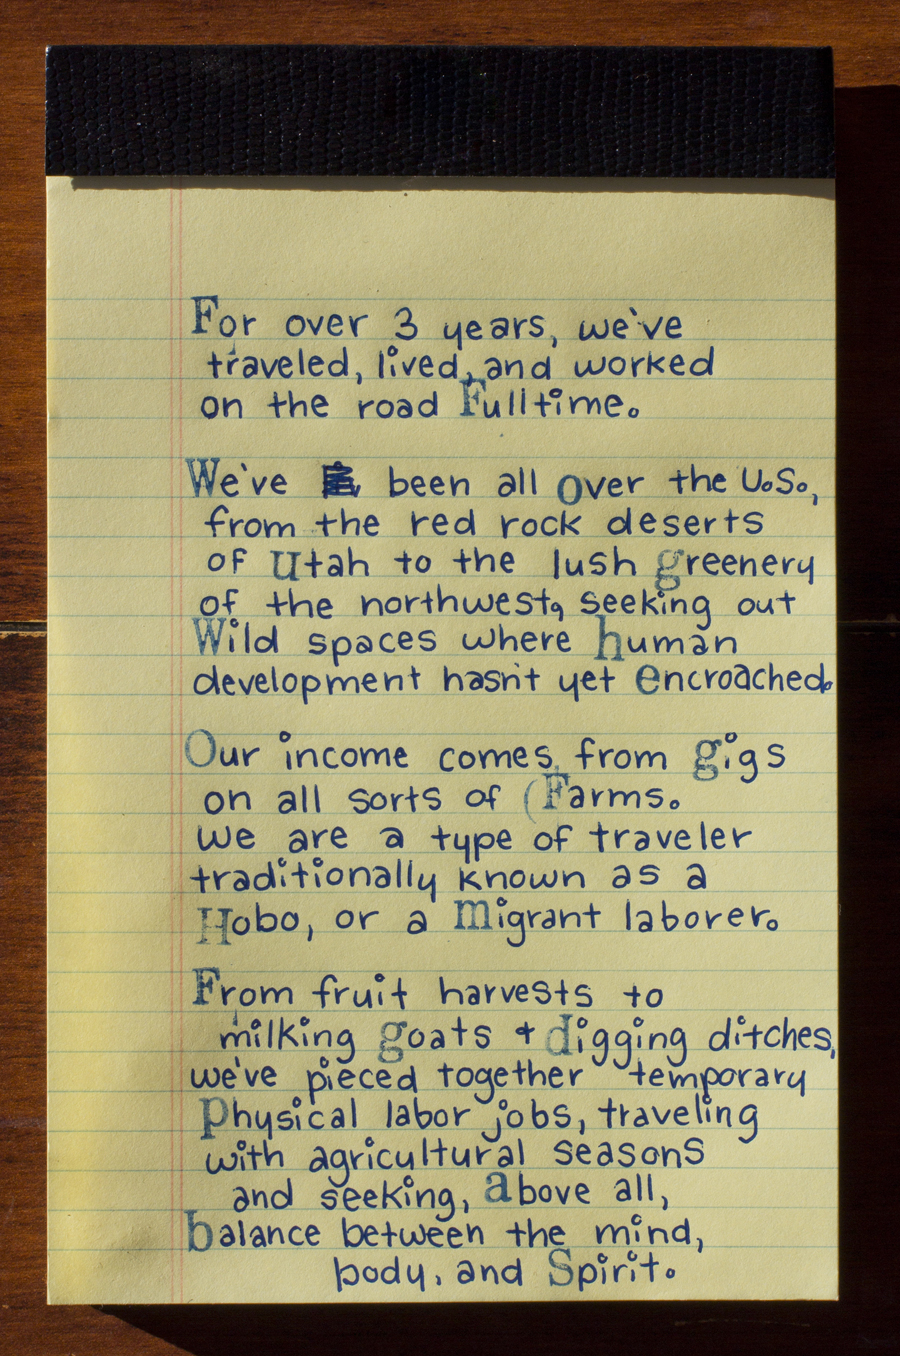 For over 3 years, we've
traveled, lived, and worked
on the road Fulltime.
We've been all over the U.S.,
from the red rock deserts
of Utah to the lush greenery
of the northwest, seeking out
Wild spaces where human
development hasn't yet encroached.
Our income comes from gigs
on all sorts of (Farms.
we are a type of traveler
traditionally known as a
Hobo, or a migrant laborer.
From fruit harvests to
milking goats + digging ditches,
we've pieced together temporary
Physical labor jobs, traveling
with agricultural seasons
and seeking, above all,
balance between the mind,
body, and Spirit.